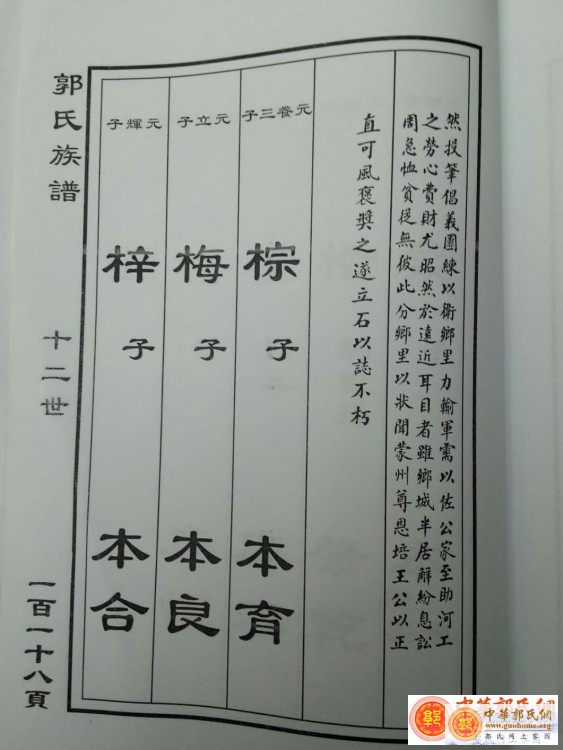 然投筆倡義團練以衛鄉里力輸軍需以佐公家至助河工
之勞心費財尤昭然於遠近耳目者雖鄉城半居解紛息訟
周急恤貧從無彼此分鄉里以狀聞蒙州尊恩培王公以正
直可風褒獎之遂立石以誌不朽
元養三子
棕
子
本育
元立子
梅
子
本良
元輝子
梓
子
本合
郭氏族譜
十二世
一百一十八頁
中華郭氏網
www.guohome.org
郭氏網上家園